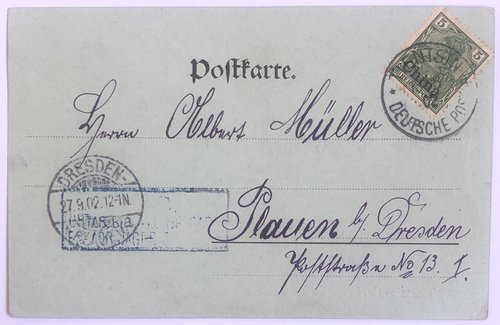 5 5
China
DEUTSCHE POS
Postkarte.
Herrn Albert Müller
DRESDEN-
27.9.02.12-1N.
Plauen b/ Dresden
Poststraße No 13. I.